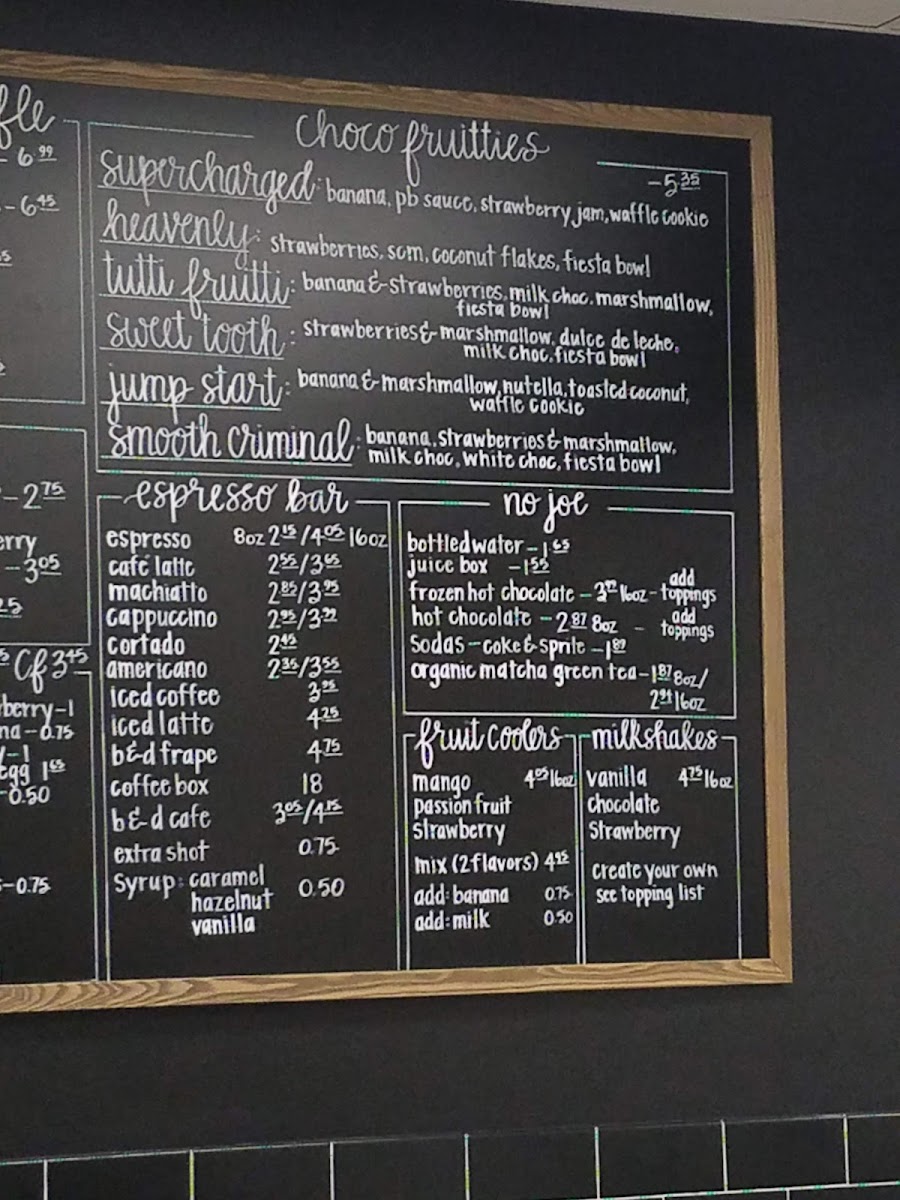 fle
6.99
- 6.45
- 2.75
erry
- 3.05
Cf 3.45
berry - 1
na - 0.75
y - 1
egg 1.65
- 0.50
- 0.75
Choco fruitties
- 5.35
supercharged: banana, pb sauce, strawberry jam, waffle cookie
heavenly: strawberries, scm, coconut flakes, fiesta bowl
tutti fruitti: banana & strawberries, milk choc. marshmallow,
fiesta bowl
sweet tooth: strawberries & marshmallow, dulce de leche,
milk choc, fiesta bowl
jump start: banana & marshmallow, nutella, toasted coconut,
waffle cookie
smooth criminal: banana, strawberries & marshmallow,
milk choc, white choc, fiesta bowl
espresso bar
espresso 8oz 2.15 / 4.05 16oz
café latte 2.55 / 3.65
machiatto 2.85 / 3.95
cappuccino 2.95 /
cortado 2.45
americano 2.35 / 3.55
iced coffee 3.25
iced latte 4.25
b&d frape 4.75
coffee box 18
b&d cafe 3.05 /
extra shot 0.75
syrup: caramel 0.50
hazelnut
vanilla
no joe
bottled water - 1.65
juice box - 1.55
frozen hot chocolate - 16oz - add toppings
hot chocolate - 2.87 8oz - add toppings
sodas - coke & sprite - 1.89
organic matcha green tea - 1.87 8oz /
2.94 16oz
fruit coolers
mango 4.05 16oz
passion fruit
strawberry
mix (2 flavors) 4.95
add: banana 0.75
add: milk 0.50
milkshakes
vanilla 4.75 16oz
chocolate
strawberry
create your own
see topping list